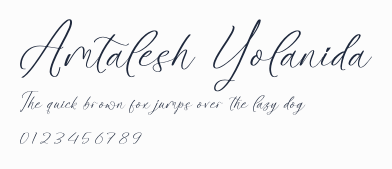 Amtalesh Yolanida
The quick brown fox jumps over the lazy dog
0123456789